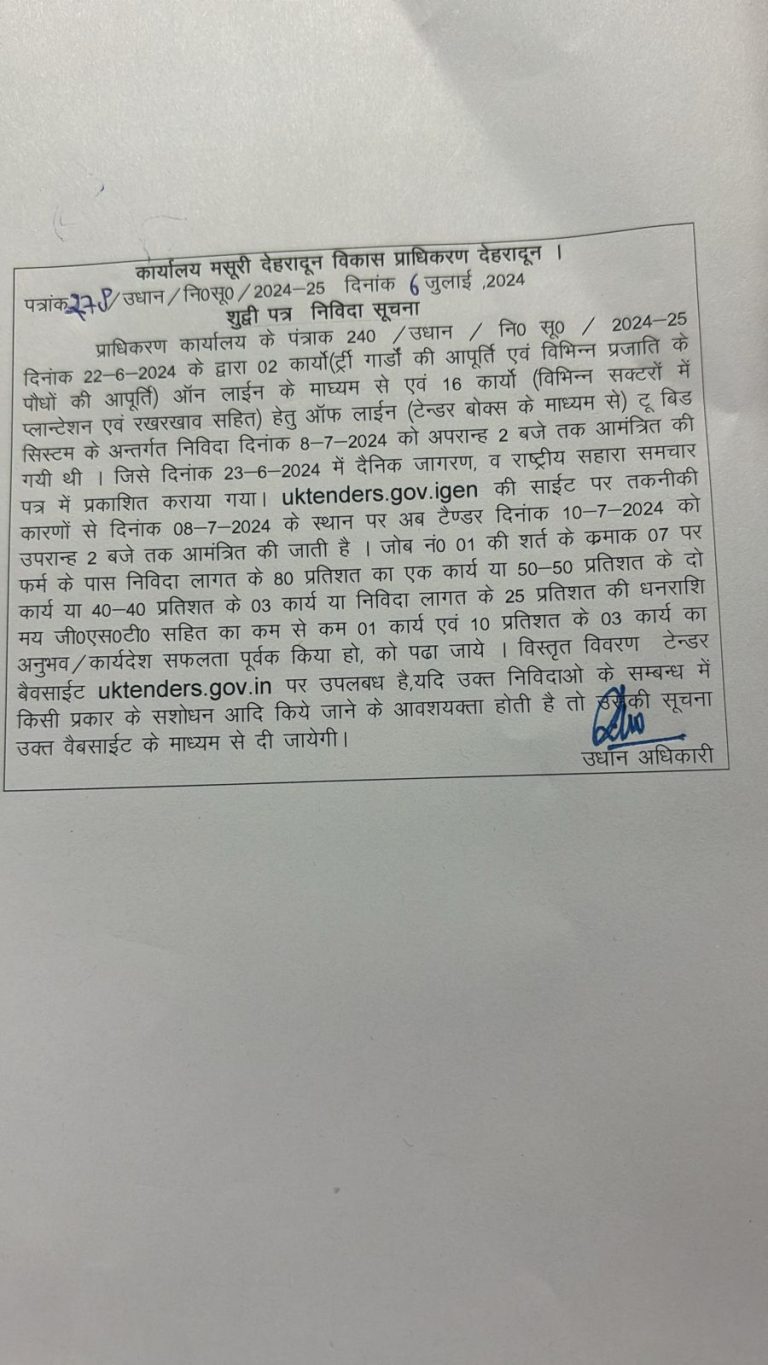 कार्यालय मसूरी देहरादून विकास प्राधिकरण देहरादून ।
पत्रांक /उधान/नि0सू0/2024-25 दिनांक 6 जुलाई ,2024
शुद्वी पत्र निविदा सूचना
प्राधिकरण कार्यालय के पंत्राक 240 /उधान / नि0 सू0 / 2024-25
दिनांक 22-6-2024 के द्वारा 02 कार्यो(ट्री गार्डों की आपूर्ति एवं विभिन्न प्रजाति के
पौधों की आपूर्ति) ऑन लाईन के माघ्यम से एवं 16 कार्यो (विभिन्न सक्टरों में
प्लान्टेशन एवं रखरखाव सहित) हेतु ऑफ लाईन (टेन्डर बोक्स के माध्यम से) टू बिड
सिस्टम के अन्तर्गत निविदा दिनांक 8-7-2024 को अपरान्ह 2 बजे तक आमंत्रित की
गयी थी । जिसे दिनांक 23-6-2024 में दैनिक जागरण, व राष्ट्रीय सहारा समचार
पत्र में प्रकाशित कराया गया। uktenders.gov.igen की साईट पर तकनीकी
कारणों से दिनांक 08-7-2024 के स्थान पर अब टैण्डर दिनांक 10-7-2024 को
उपरान्ह 2 बजे तक आमंत्रित की जाती है । जोब नं0 01 की शर्त के क्रमाक 07 पर
फर्म के पास निविदा लागत के 80 प्रतिशत का एक कार्य या 50-50 प्रतिशत के दो
कार्य या 40-40 प्रतिशत के 03 कार्य या निविदा लागत के 25 प्रतिशत की धनराशि
मय जी0एस0टी0 सहित का कम से कम 01 कार्य एवं 10 प्रतिशत के 03 कार्य का
अनुभव/कार्यदेश सफलता पूर्वक किया हो, को पढा जाये । विस्तृत विवरण टेन्डर
बैवसाईट uktenders.gov.in पर उपलबध है,यदि उक्त निविदाओ के सम्बन्ध में
किसी प्रकार के सशोधन आदि किये जाने के आवशयक्ता होती है तो उसकी सूचना
उक्त वैबसाईट के माध्यम से दी जायेगी।
उधान अधिकारी